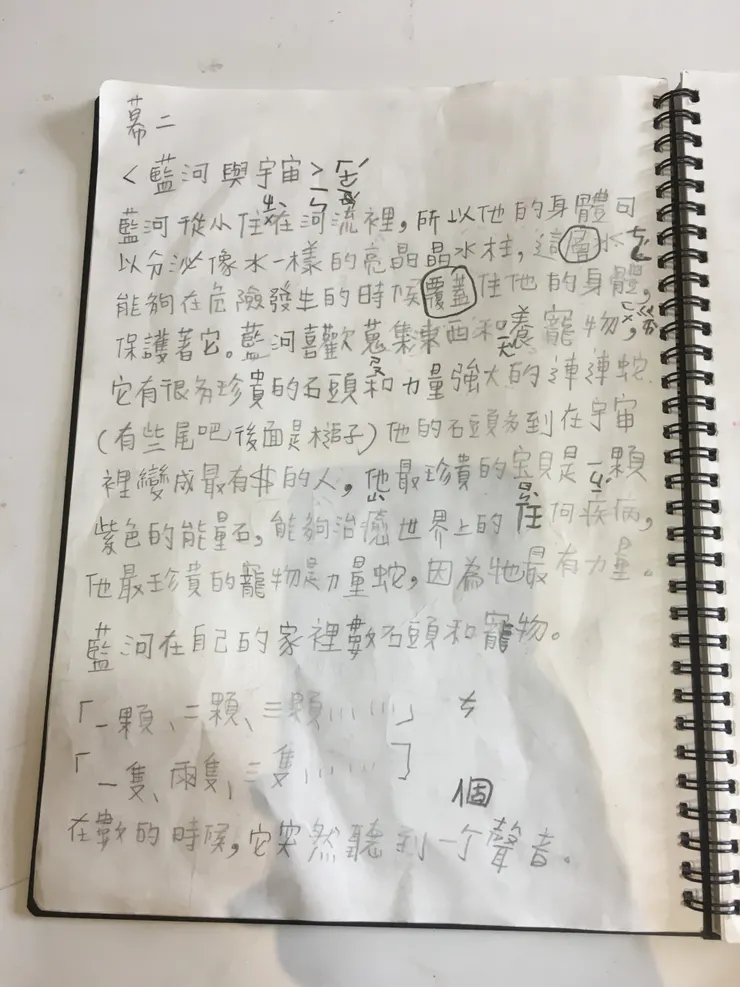 幕二
<藍河與宇宙>
藍河從小住在河流裡，所以他的身體可
以分泌像水一樣的亮晶晶水柱，這層水
能夠在危險發生的時候覆蓋住他的身體，
保護著它。藍河喜歡蒐集東西和養寵物，
它有很多珍貴的石頭和力量強大的連連蛇
(有些尾吧後面是槌子)他的石頭多到在宇宙
裡變成最有$的人，他最珍貴的宝貝是一顆
紫色的能量石，能夠治癒世界上的任何疾病，
他最珍貴的寵物是力量蛇，因為牠最有力量。
藍河在自己的家裡數石頭和寵物。
「一顆、二顆、三顆⋯⋯」 ㄘ
「一隻、兩隻、三隻⋯⋯」
個
在數的時候，它突然聽到一个聲音。